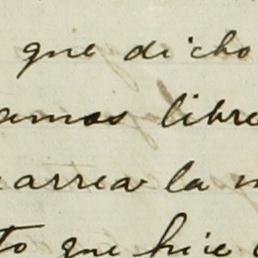 que dicho
amos libre
arrea la
to que hice